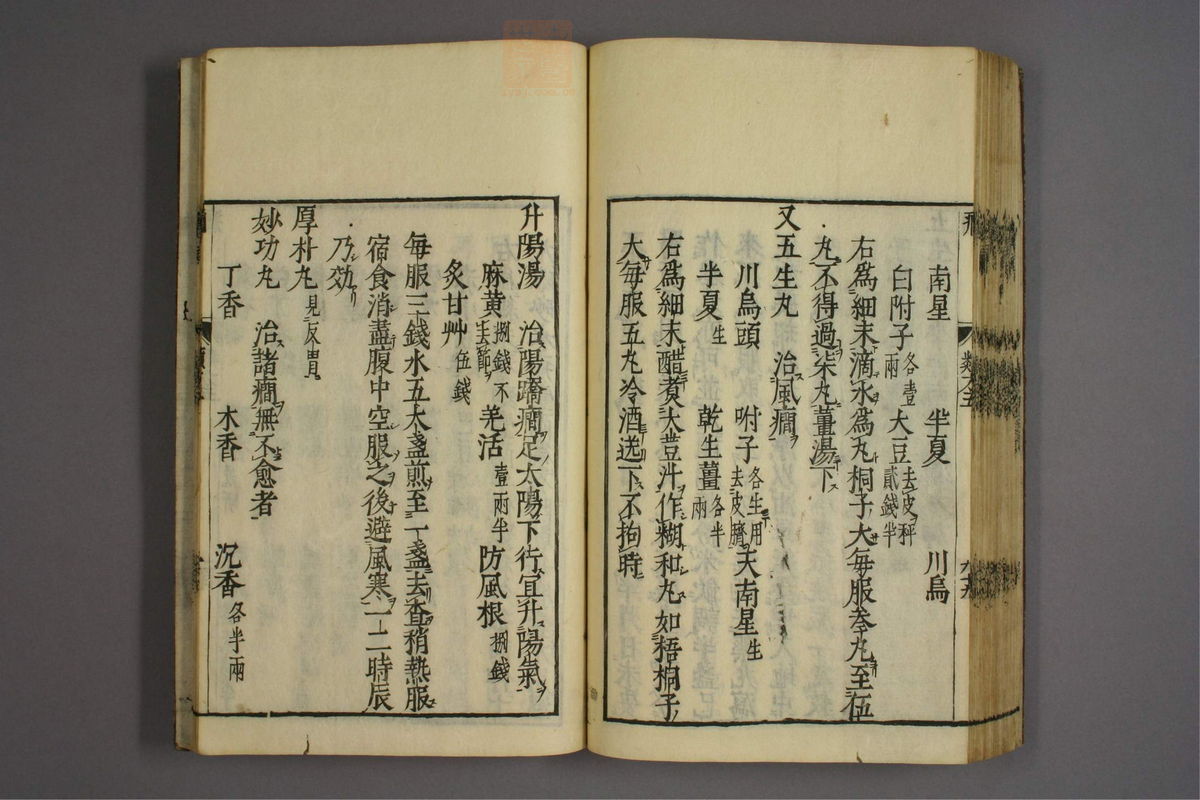 南星 半夏 川烏
白附子各壹兩 大豆去皮秤貳錢半
右爲細末滴水爲丸桐子大每服叄丸至伍
丸不得過柒丸薑湯下
又五生丸 治風癇
川烏頭 附子各生用去皮臍 天南星生
半夏生 乾生薑各半兩
右爲細末醋煮大豆汁作糊和丸如梧桐子
大每服五丸冷酒送下不拘時
升陽湯 治陽蹻癇足太陽下行宜升陽氣
麻黄捌錢不去節 羌活壹兩半 防風根捌錢
炙甘艸伍錢
每服三錢水五大盞煎至一盞去柤稍熱服
宿食消盡腹中空服之後避風寒一二時辰
乃効
厚朴丸見反胃
妙功丸 治諸癇無不愈者
丁香 木香 沉香各半兩